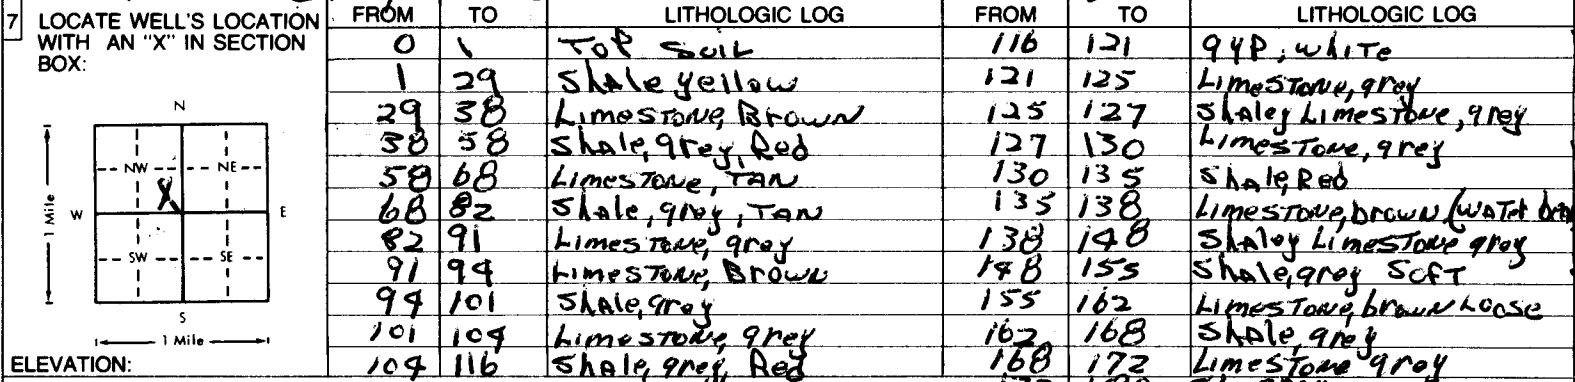 7 LOCATE WELL'S LOCATION WITH AN "X" IN SECTION BOX:
N
NW NE
W X E
1 Mile
SW SE
S
1 Mile
ELEVATION:
FROM TO LITHOLOGIC LOG FROM TO LITHOLOGIC LOG
0 1 Top Soil 116 121 gyp, white
1 29 Shale yellow 121 125 Limestone, grey
29 38 Limestone, Brown 125 127 Shaley Limestone, grey
38 58 Shale, grey, Red 127 130 Limestone, grey
58 68 Limestone, TAN 130 135 Shale, Red
68 82 Shale, grey, TAN 135 138 Limestone, brown (water
82 91 Limestone, grey 138 148 Shaley Limestone grey
91 94 Limestone, Brown 148 155 Shale, grey Soft
94 101 Shale, grey 155 162 Limestone, brown Loose
101 104 Limestone, grey 162 168 Shale, grey
104 116 Shale, grey, Red 168 172 Limestone grey